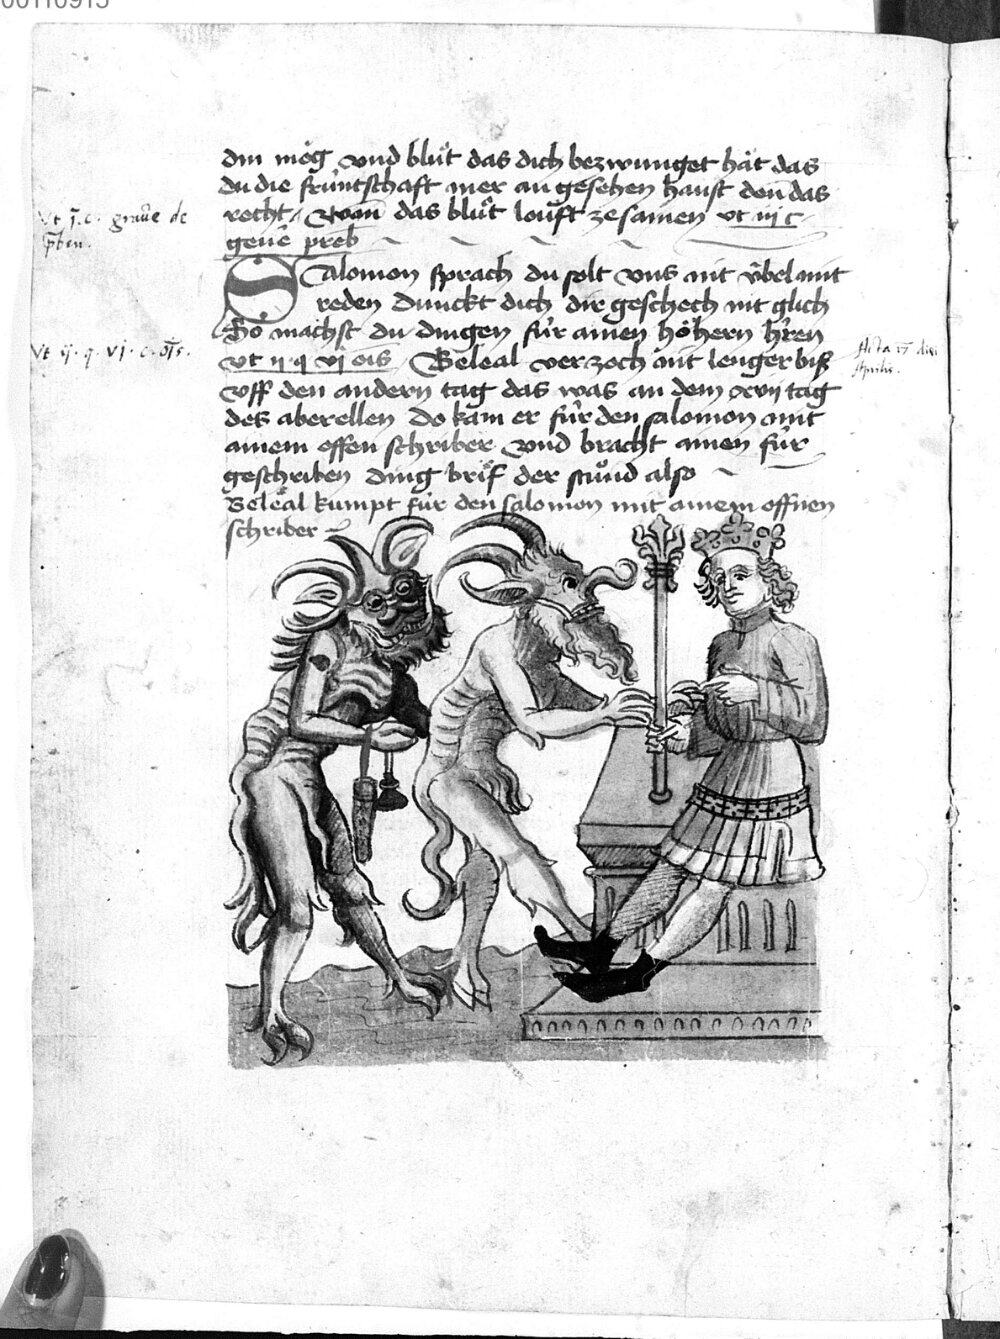 00110915
din mög vnd blůt das dich bezwunget hät das
du die früntschaft mer an gesehen haust denn das
recht / Wann das blůt louft zesamen vt iij c
geuē preb
Vt j. c. graue de
pben.
Salomon sprach du solt vns nit v̈bel mit
reden dunckt dich dir geschech nit glich
So machst du dingen für ainen höhern hren
vt ij q vj ois / Beleal verzoch nit lenger biß
Vt ij. q. vj. c. ois.
Acta 17 die
Aprilis.
vff den andern tag das was an dem xvij tag
des aberellen Do kam er für den salomon mit
ainem offen schriber vnd bracht ainen für
geschriben ding brif der stůnd also
Beleal kumpt für den salomon mit ainem offnen
schriber